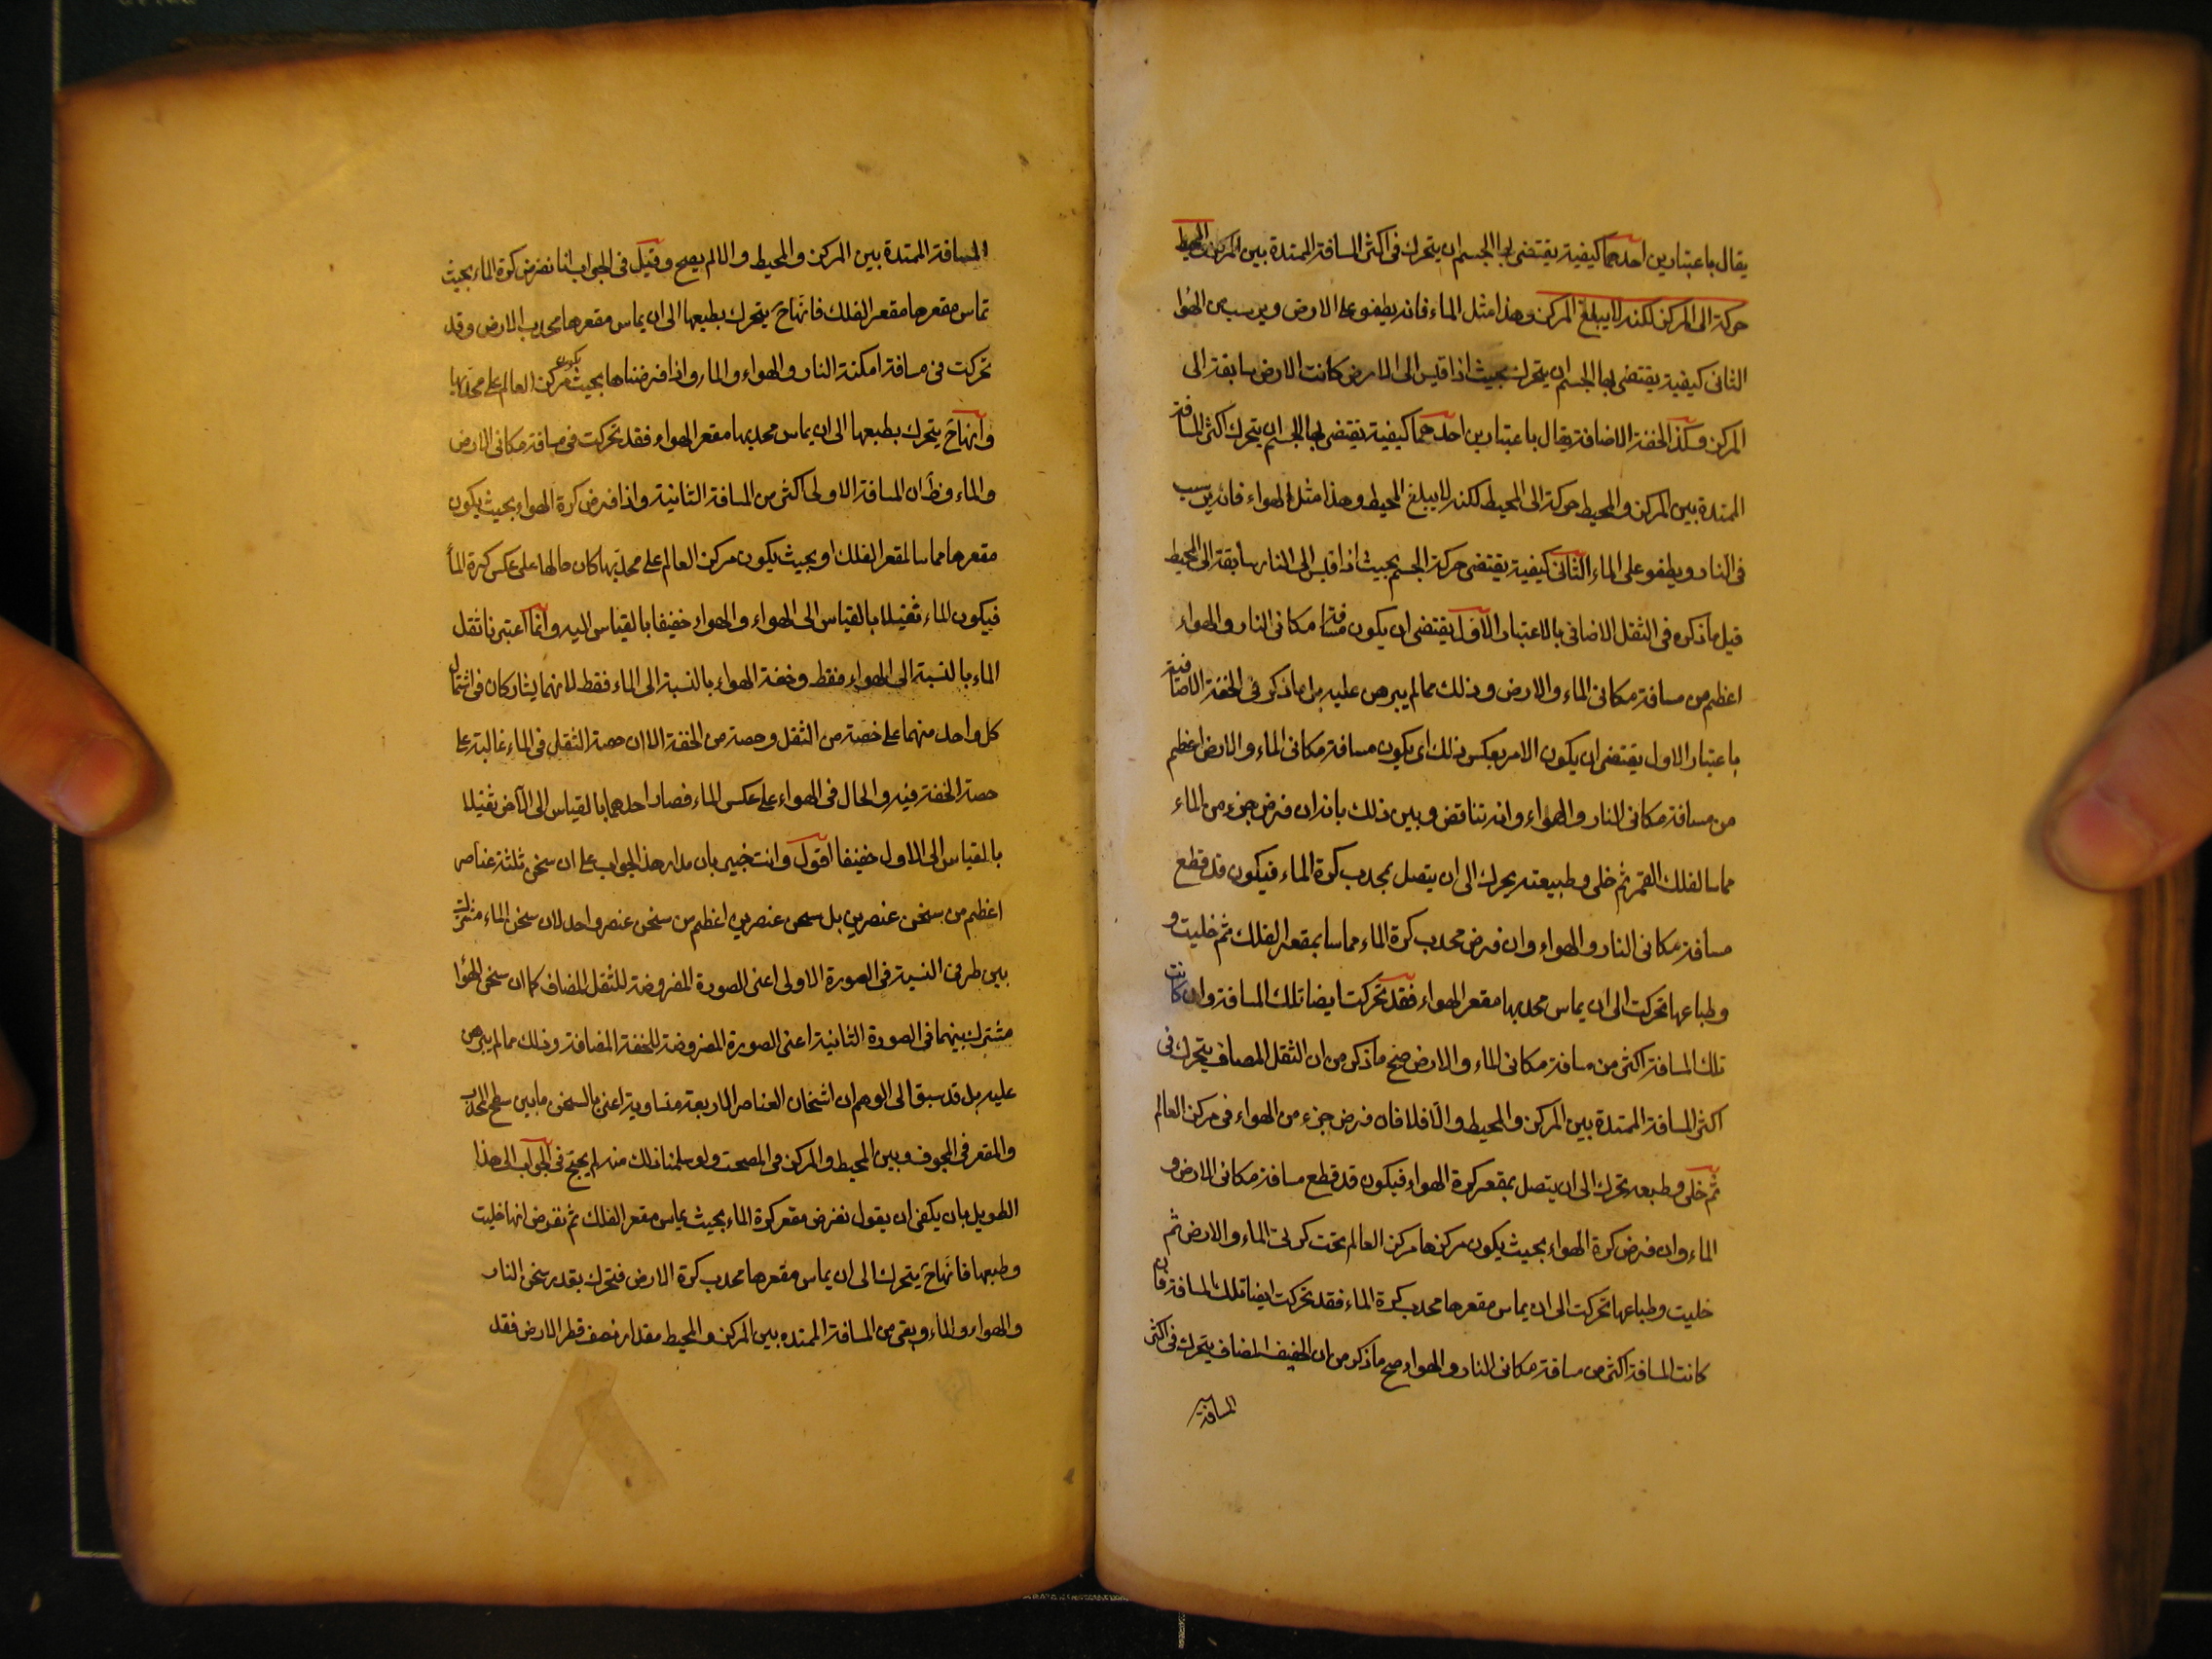 يقال باعتبارين احدهما كيفية يقتضى بها الجسم ان يتحرك فى اكثر المسافة الممتدة بين المركز والمحيط
حركة الى المركز لكنه لا يبلغ المركز وهذا مثل الماء فانه يطفو على الارض ويرسب من الهوا
الثانى كيفية يقتضى بها الجسم ان يتحرك بحيث اذا قيس الى الارض كانت الارض سابقة الى
المركز وكذا الخفة الاضافة يقال باعتبارين احدهما كيفية يقتضى بها الجسم ان يتحرك اكثر المسافة
الممتدة بين المركز والمحيط حركة الى المحيط لكنه لا يبلغ المحيط وهذا مثل الهواء فانه يرسب
فى النار ويطفو على الماء الثانى كيفية يقتضى حركة الجسم بحيث اذا قيس الى النار سابقة الى المحيط
قيل ما ذكره فى الثقل الاضافى بالاعتبار الاول يقتضى ان يكون مسافة مكانى النار والهواء
اعظم من مسافة مكانى الماء والارض وذلك مما لم يبرهن عليه بل ما ذكر فى الخفة الاضافية
باعتبار الاول يقتضى ان يكون الامر بعكس ذلك اى يكون مسافة مكانى الماء والارض اعظم
من مسافة مكانى النار والهواء وانه تناقض وبين ذلك بانه ان فرض جزء من الماء
مماسا لفلك القمر ثم خلى وطبيعته يحرك الى ان يتصل بمحدب كرة الماء فيكون قد قطع
مسافة مكانى النار والهواء وان فرض محدب كرة الماء مماسا بمقعر الفلك ثم خليت و
وطباعها تحركت الى ان يماس محدبها مقعر الهواء فقد تحركت ايضا تلك المسافة وان كانت
تلك المسافة اكثر من مسافة مكانى الماء والارض صح ما ذكر من ان الثقل المضاف يتحرك فى
اكثر المسافة الممتدة بين المركز والمحيط والا فلا فان فرض جزء من الهواء فى مركز العالم
ثم خلى وطبعه تحرك الى ان يتصل بمقعر كرة الهواء فيكون قد قطع مسافة مكانى الارض و
الماء وان فرض كرة الهواء بحيث يكون مركزها مركز العالم تحت كرتى الماء والارض ثم
خليت وطباعها تحركت الى ان يماس مقعرها محدب كرة الماء فقد تحركت ايضا تلك المسافة فان
كانت المسافة اكثر من مسافة مكانى النار والهواء صح ما ذكر من ان الخفيف المضاف يتحرك فى اكثر
المسافة
المسافة الممتدة بين المركز والمحيط والا لم يصح وقيل فى الجواب انا نفرض كرة الماء بحيث
تماس مقعرها مقعر الفلك فانها ح يتحرك بطبعها الى ان يماس مقعرها محدب الارض وقد
تحركت فى مسافة امكنة النار والهواء والمار واذا فرضناها بحيث يكون مركز العالم على محدبها
وانها ح يتحرك بطبعها الى ان يماس محدبها مقعر الهواء فقد تحركت فى مسافة مكانى الارض
والماء وظ ان المسافة الاولى اكثر من المسافة الثانية واذا فرض كرة الهواء بحيث يكون
مقعرها مماسا لمقعر الفلك او بحيث يكون مركز العالم على محدبها كان حالها على عكس كرة الماء
فيكون الماء ثقيلا بالقياس الى الهواء والهواء خفيفا بالقياس اليه وانما اعتبرنا ثقل
الماء بالنسبة الى الهواء فقط وخفة الهواء بالنسبة الى الماء فقط لانهما يشاركان فى اشتمال
كل واحد منهما على حصة من الثقل وحصة من الخفة الا ان حصة الثقل فى الماء غالبة على
حصة الخفة فيه والحال فى الهواء على عكس الماء فصار احدهما بالقياس الى الآخر ثقيلا
بالقياس الى الاول خفيفا اقول وانت خبير بان مدار هذا الجواب على ان سخن ثلثة عناصر
اعظم من سخن عنصرين بل سخن عنصرين اعظم من سخن عنصر واحد لان سخن الماء مشترك
بين طرفى النسبة فى الصورة الاولى اعنى الصورة المفروضة للثقل المضاف كما ان سخن الهوا
مشترك بينهما فى الصورة الثانية اعنى الصورة المفروضة للخفة المضافة وذلك مما لم يبرهن
عليه بل قد سبق الى الوهم ان اشخان العناصر الاربعة متساوية اعنى بالسخن ما بين سطح المحدب
والمقعر فى المجوف وبين المحيط والمركز فى المصمت ولو سلمنا ذلك منه لم يحتج فى الجواب الى هذا
الطويل بان يكفى ان يقول نفرض مقعر كرة الماء بحيث يماس مقعر الفلك ثم نفرض انها خليت
وطبعها فانها ح يتحرك الى ان يماس مقعرها محدب كرة الارض فتحرك بقدر سخن النار
والهواء والماء وبقى من المسافة الممتده بين المركز والمحيط مقدار نصف قطر الارض فقد